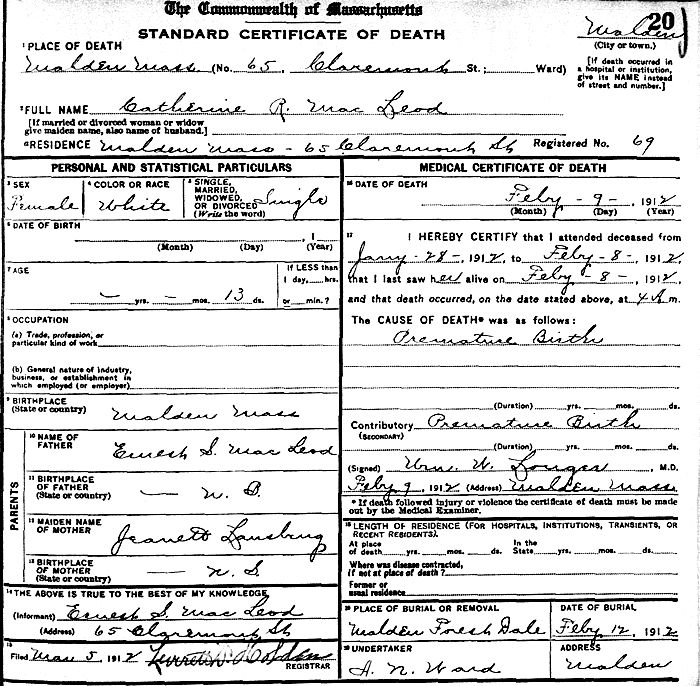 The Commonwealth of Massachusetts
STANDARD CERTIFICATE OF DEATH
20
Malden
(City or town.)
¹ PLACE OF DEATH
Malden Mass (No. 65, Claremont St.; Ward)
[If death occurred in a hospital or institution, give its NAME instead of street and number.]
² FULL NAME Catherine R. Mac Leod
[If married or divorced woman or widow give maiden name, also name of husband.]
RESIDENCE Malden Mass - 65 Claremont St Registered No. 69
PERSONAL AND STATISTICAL PARTICULARS
³ SEX
Female
⁴ COLOR OR RACE
White
⁵ SINGLE, MARRIED, WIDOWED, OR DIVORCED (Write the word)
Single
⁶ DATE OF BIRTH
, 1
(Month) (Day) (Year)
⁷ AGE
— yrs. — mos. 13 ds.
If LESS than 1 day, hrs. or min.?
⁸ OCCUPATION
(a) Trade, profession, or particular kind of work
(b) General nature of industry, business, or establishment in which employed (or employer)
⁹ BIRTHPLACE
(State or country) Malden Mass
PARENTS
¹⁰ NAME OF FATHER Ernest S. Mac Leod
¹¹ BIRTHPLACE OF FATHER (State or country) — N. S.
¹² MAIDEN NAME OF MOTHER Jeanett
¹³ BIRTHPLACE OF MOTHER (State or country) — N. S.
¹⁴ THE ABOVE IS TRUE TO THE BEST OF MY KNOWLEDGE
(Informant) Ernest S. Mac Leod
(Address) 65 Claremont St
¹⁵ Filed Mar 5, 1912 Holden
REGISTRAR
MEDICAL CERTIFICATE OF DEATH
¹⁶ DATE OF DEATH
Feby - 9 - , 1912
(Month) (Day) (Year)
¹⁷ I HEREBY CERTIFY that I attended deceased from
Jany - 28 - , 1912, to Feby - 8 - , 1912,
that I last saw her alive on Feby - 8 - , 1912,
and that death occurred, on the date stated above, at 4 A m.
The CAUSE OF DEATH* was as follows:
Premature Birth
(Duration) yrs. mos. ds.
Contributory Premature Birth
(SECONDARY)
(Duration) yrs. mos. ds.
(Signed) Wm. W. , M.D.
Feby 9, 1912 (Address) Malden Mass.
* If death followed injury or violence the certificate of death must be made out by the Medical Examiner.
¹⁸ LENGTH OF RESIDENCE (FOR HOSPITALS, INSTITUTIONS, TRANSIENTS, OR RECENT RESIDENTS).
At place of death yrs. mos. ds. In the State yrs. mos. ds.
Where was disease contracted, if not at place of death?
Former or usual residence
¹⁹ PLACE OF BURIAL OR REMOVAL
Malden Forest Dale
DATE OF BURIAL
Feby 12, 1912
²⁰ UNDERTAKER
A. N. Ward
ADDRESS
Malden